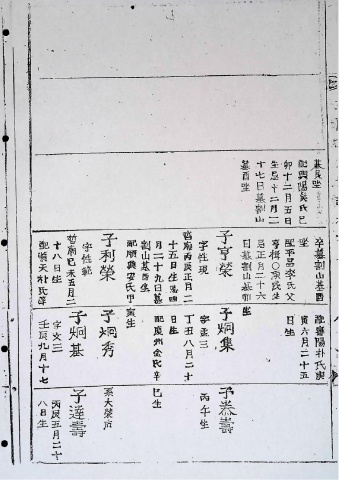 墓艮坐
配興陽吳氏己
卯十二月五日
生忌十二月二
十七日墓劃山
墓酉坐
卒墓劃山墓酉
坐
配平昌李氏父
忌正月二十六
日墓劃山墓卯
坐
子亨榮
字性現
哲廟丙辰正月二
十五日生
月二十九日墓
劃山墓
配順興安氏甲寅生
子利榮
字性範
哲廟己未五月二
十八日生
配順天朴氏
配密陽朴氏
寅六月二十五
日生
子炯集
字孟三
丁丑八月二十
日生
配慶州金氏辛
巳生
子炯秀
子炯基
字文三
壬辰九月十七
子泰壽
丙午生
系大榮后
子達壽
丙辰五月二十
八日生